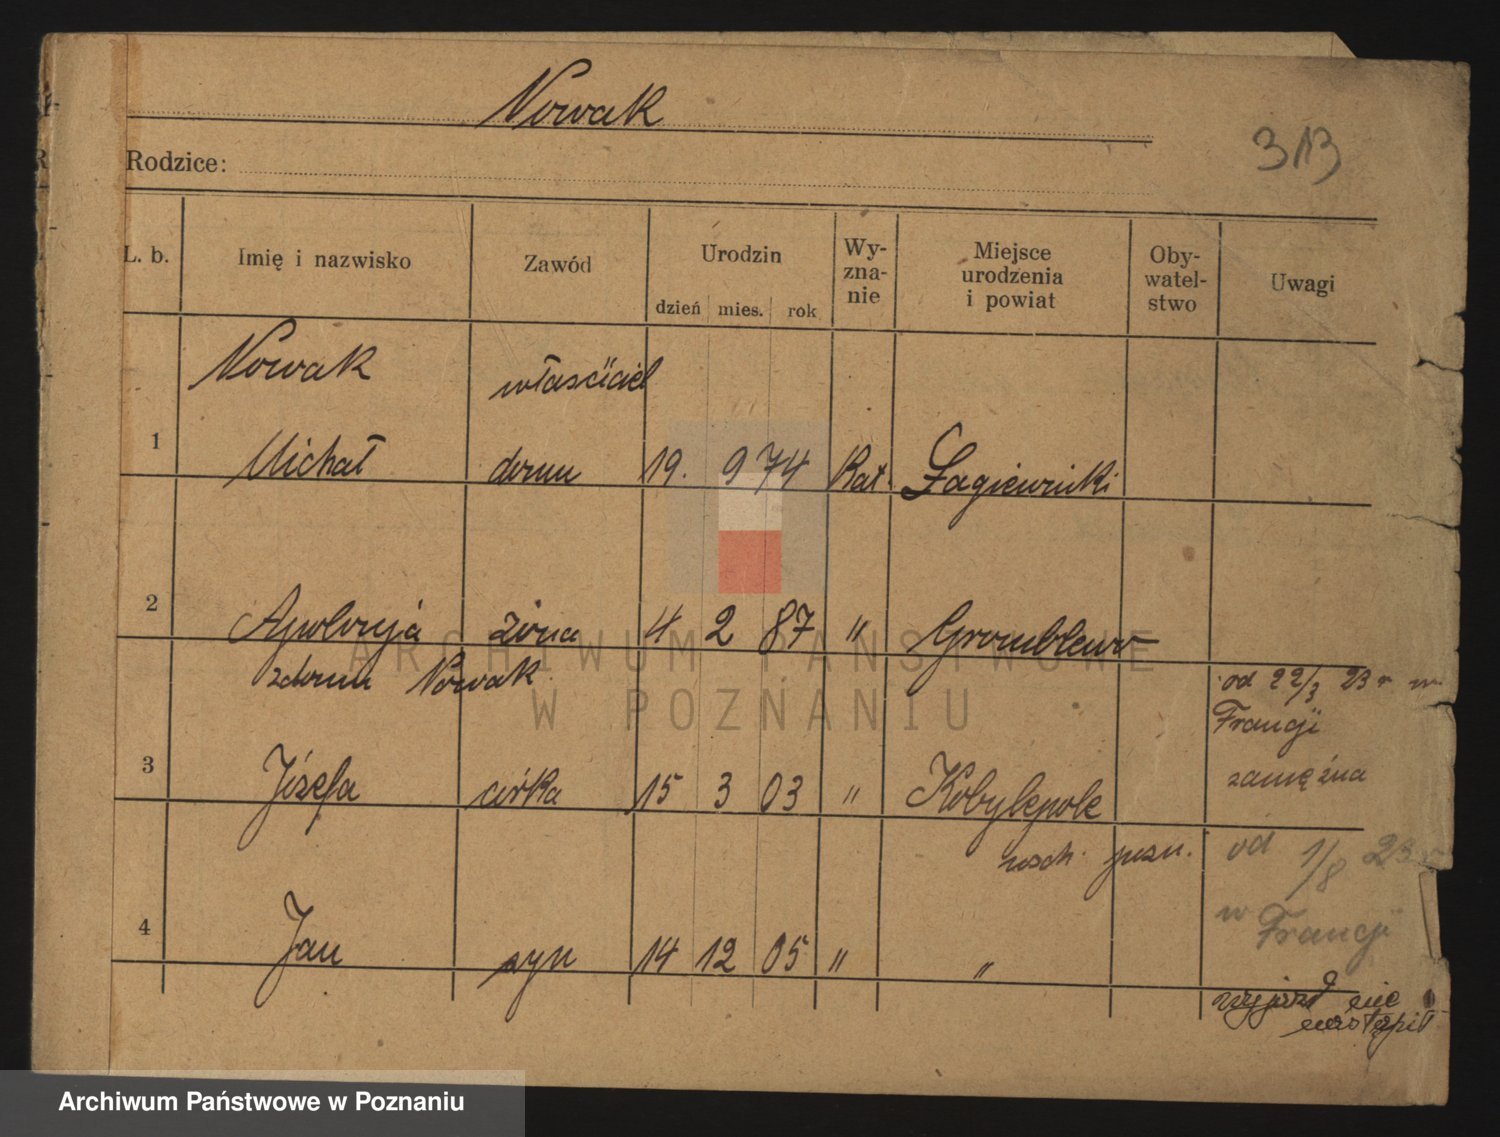 Nowak
313
Rodzice:
L. b. Imię i nazwisko Zawód Urodzin dzień mies. rok Wy-zna-nie Miejsce urodzenia i powiat Oby-watel-stwo Uwagi
Nowak właściciel
1 Michał domu 19. 9 74 Kat. Łagiewniki
2 Apolonja żona 4 2 87 " Gromblewo
zdomu Nowak
od 22/3 23 r w
Francji
3 Józefa córka 15 3 03 " Kobylepole zamężna
posn. od 1/8 23 r
w Francji
4 Jan syn 14 12 05 " "
wyjazd nie
nastąpił
ARCHIWUM PAŃSTWOWE
W POZNANIU
Archiwum Państwowe w Poznaniu